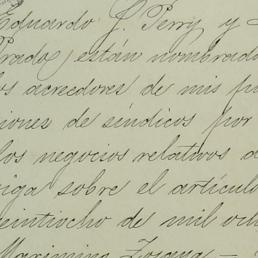 Eduardo J. Perry y
Prado, están nombrado
os acreedores de mis
iones de síndicos por
los negocios relativos a
iga sobre el artículo
veintiocho de mil och
Maximino Zozaya —